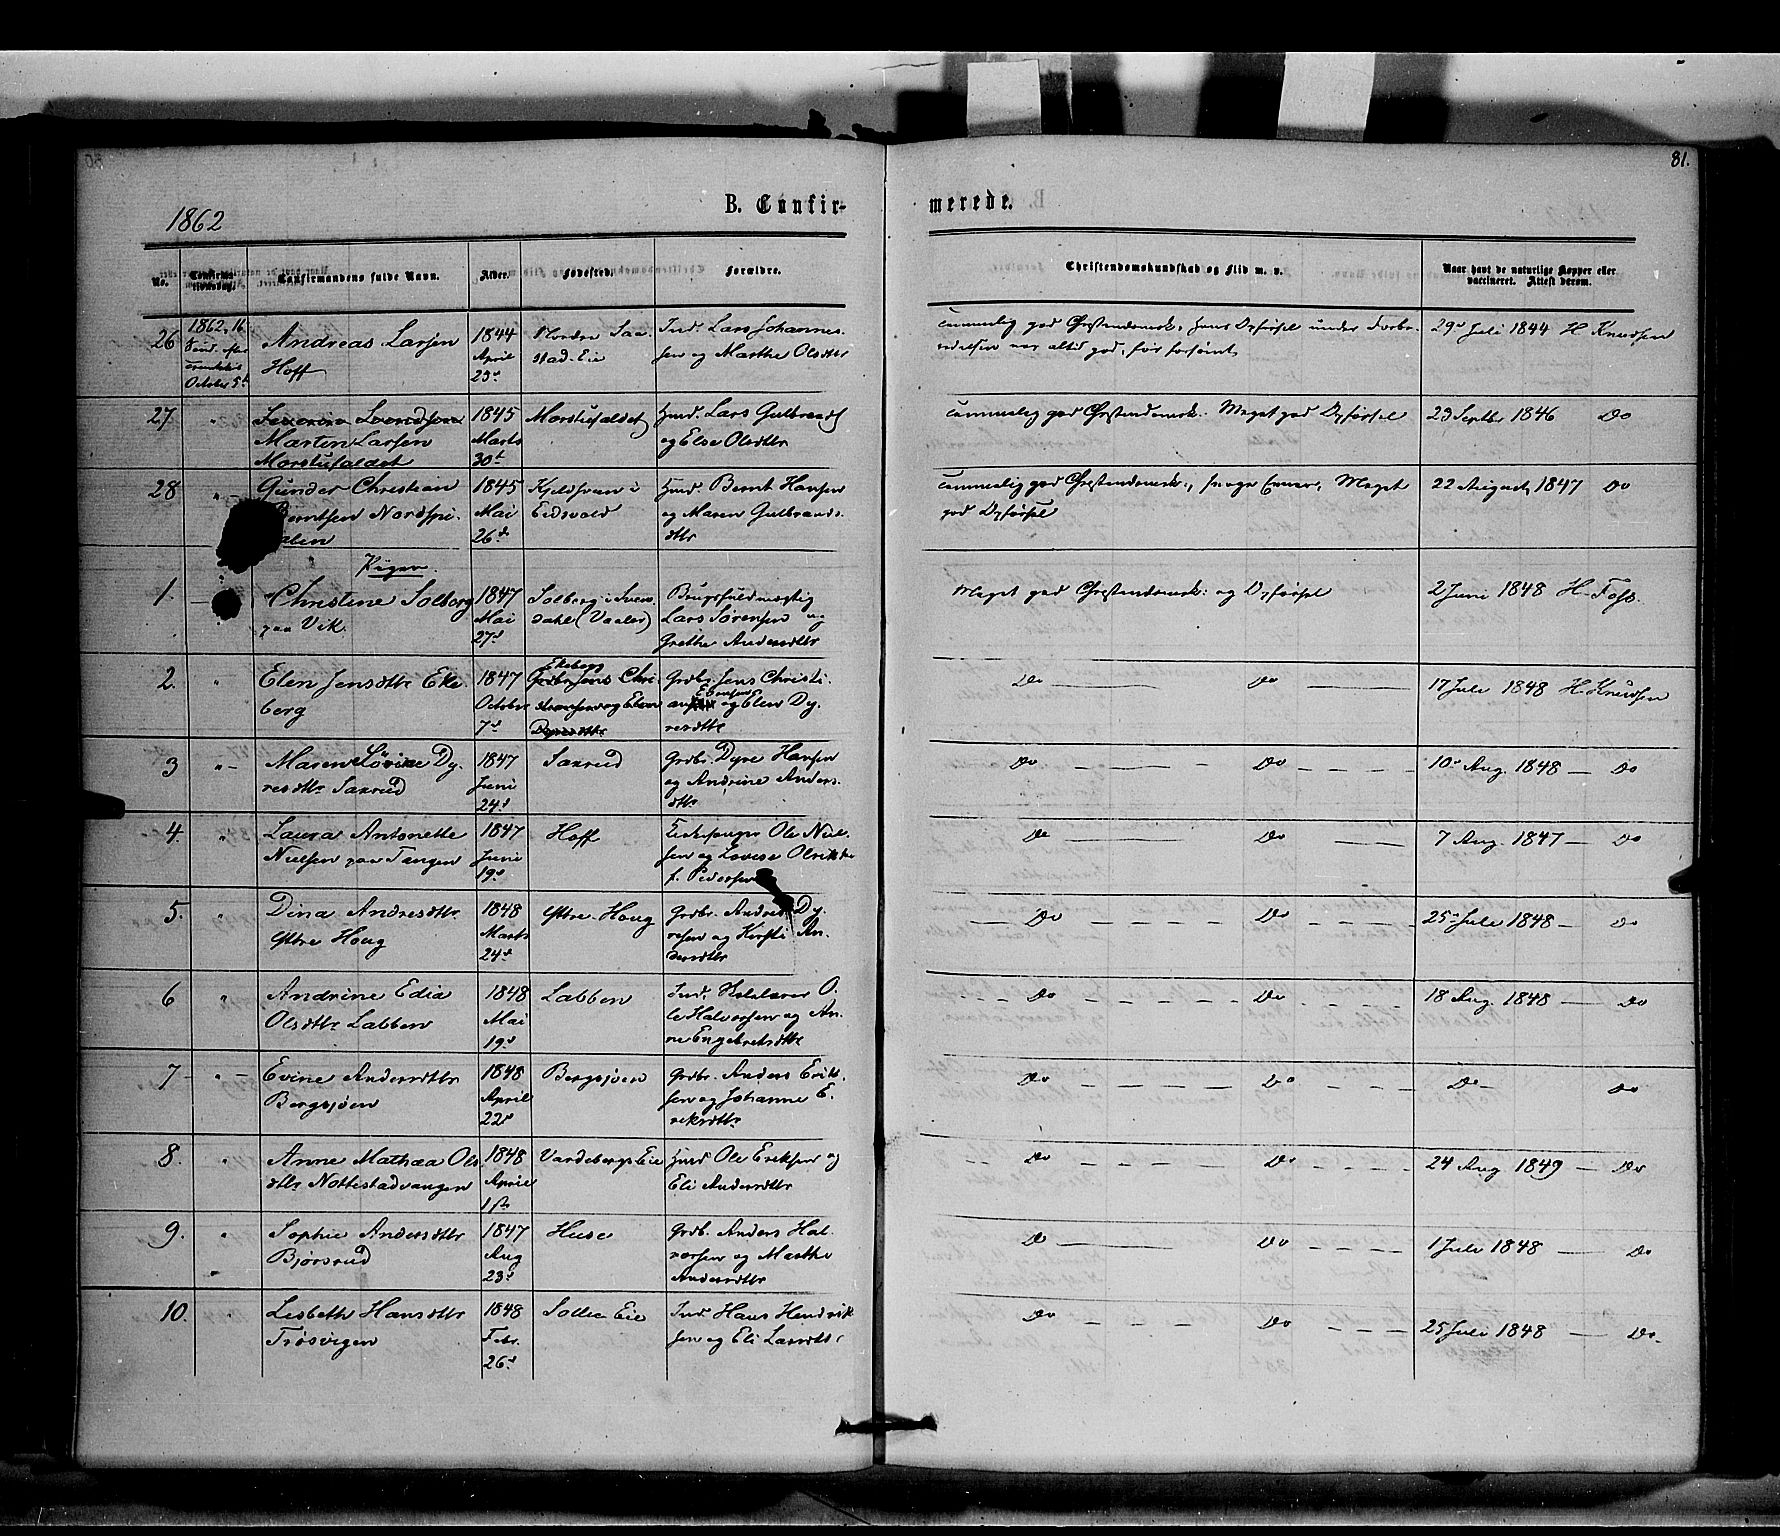 81.
1862
B. Confir-
merede.
No.
Confirmationsdag.
Confirmandens fulde Navn.
Alder.
Fødested.
Forældre.
Christendomskundskab og Flid m. v.
Naar havt de naturlige Kopper eller
vaccineret. Attest derom.
26
1862, 16
Octobr 5t
Andreas Larsen
Hoff
1844
April
23d
Nordre Saa-
stad-Eie
Ind. Lars Johannes-
sen og Marthe Olsdttr
29d Juli 1844 H Knudsen
27
Martin Larsen
Morstufaldet
1845
Marts
30t
Morstufaldet
Huusd. Lars Gulbrands
og Else Olsdttr
Meget god Opførsel
23 Septbr 1846 Do
28
Gunder Christian
Berntsen Nordspi-
1845
Mai
26d
Kjeldsrun i
Eidsvold
Huusd. Bernt Hansen
og Maren Gulbrands-
dttr
Meget
god Opførsel
22 August 1847 Do
Piger.
1.
Christine Solberg
paa Vik.
1847
Mai
27d
Solberg i
(Vaaler)
Brugsfuldmægtig
Lars Sørensen og
Grethe Andersdttr
Meget god Christendomsk: og Opførsel
2 Juni 1848 H. Foss.
2.
Elen Jensdttr Eke-
berg
1847
October
7d
Ekeberg
Grdbr Jens Chri-
stiansen og Elen
Dyresdttr
Grdbr. Jens Christi-
ansen og Elen Dy-
resdttr
Do Do
17 Juli 1848 H Knudsen
3
Maren Lovine Dy-
resdttr Saxrud
1847
Juni
24d
Saxrud
Grdbr. Dyre Hansen
og Andrine Anders-
dttr
Do Do
10d Aug. 1848 Do
4.
Laura Antonette
Nielsen paa Tangen
1847
Juni
19d
Hoff
Kirkesanger Ole Niel-
sen og Lovise Olrikke
f. Pedersen
Do Do
7 Aug. 1847 Do
5.
Dina Andresdttr
østre Houg
1848
Marts
24d
østre Houg
Grdbr. Andres Dy-
resen og Kirsti An-
dersdttr
Do Do
25d Juli 1848 Do
6
Andrine Edia
Olsdttr Labben
1848
Mai
19d
Labben
Ind. Skolelærer O-
le Halvorsen og An-
ne Engebretsdttr
Do Do
18 Aug. 1848 Do
7
Evine Andersdttr
Bergsjøen
1848
April
22d
Bergsjøen
Grdbr. Anders Erik-
sen og Johanne E-
riksdttr
Do Do
Do Do
8.
Anne Mathea Ols-
dttr Nottestadvangen
1848
April
1ste
Vardebergs Eie
Huusd Ole Eriksen og
Eli Andersdttr
Do Do
24 Aug 1849 Do
9.
Sophie Andersdttr
Bjørsrud
1847
Aug
23d
Huse
Grdb. Anders Hal-
vorsen og Marthe
Andersdttr
Do Do
1 Juli 1848 Do
10.
Lisbeth Hansdttr
Trøsvigen
1848
Febr.
26d
Sollie Eie
Ind Hans Hendrik-
sen og Eli Larsdttr
Do Do
25 Juli 1848 Do